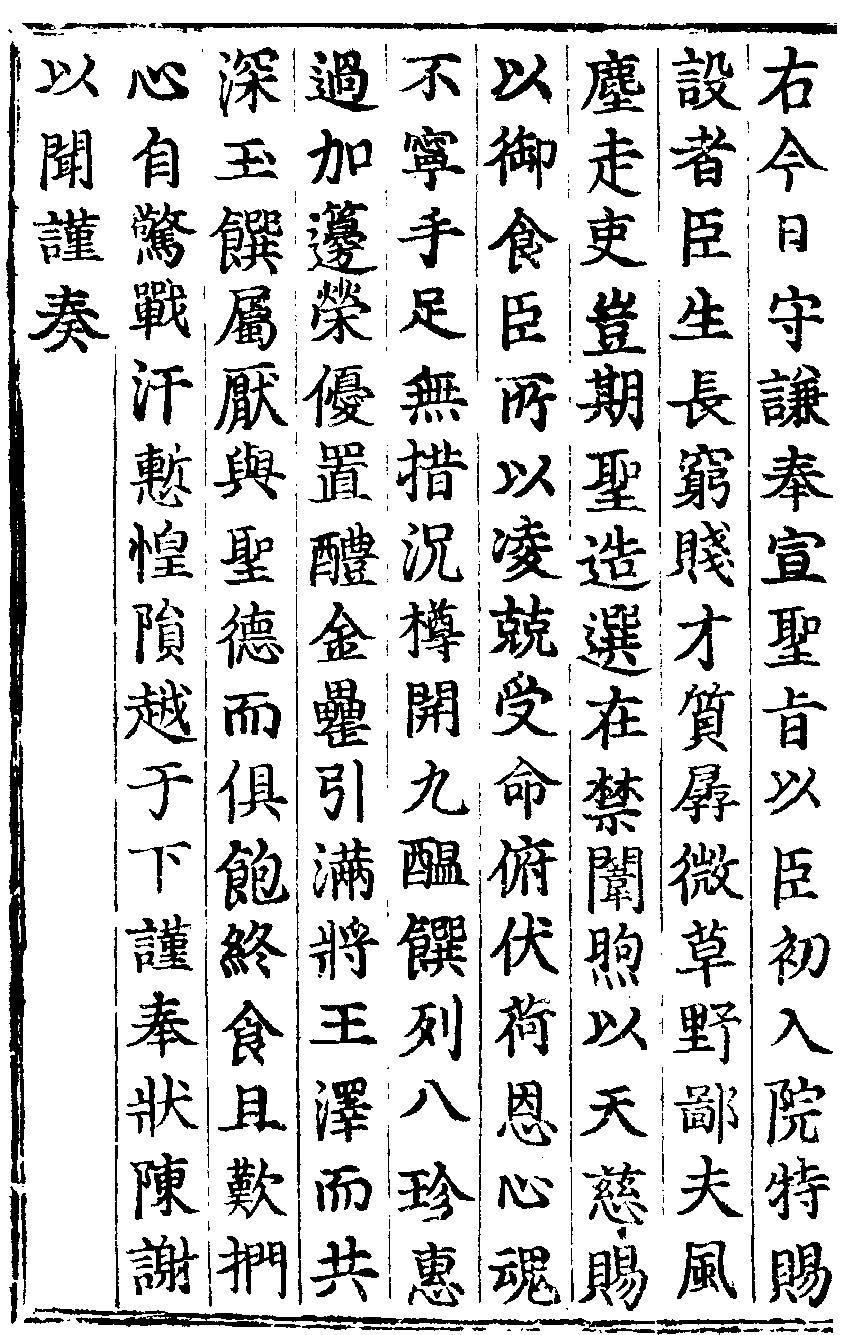 右今日守謙奉宣聖旨以臣初入院特賜
設者臣生長窮賤才質孱微草野鄙夫風
塵走吏豈期聖造選在禁闈煦以天慈賜
以御食臣所以凌兢受命俯伏荷恩心魂
不寧手足無措況樽開九醞饌列八珍惠
過加籩榮優置醴金罍引滿將王澤而共
深玉饌屬厭與聖德而俱飽終食且歎捫
心自驚戰汗慙惶隕越于下謹奉狀陳謝
以聞謹奏